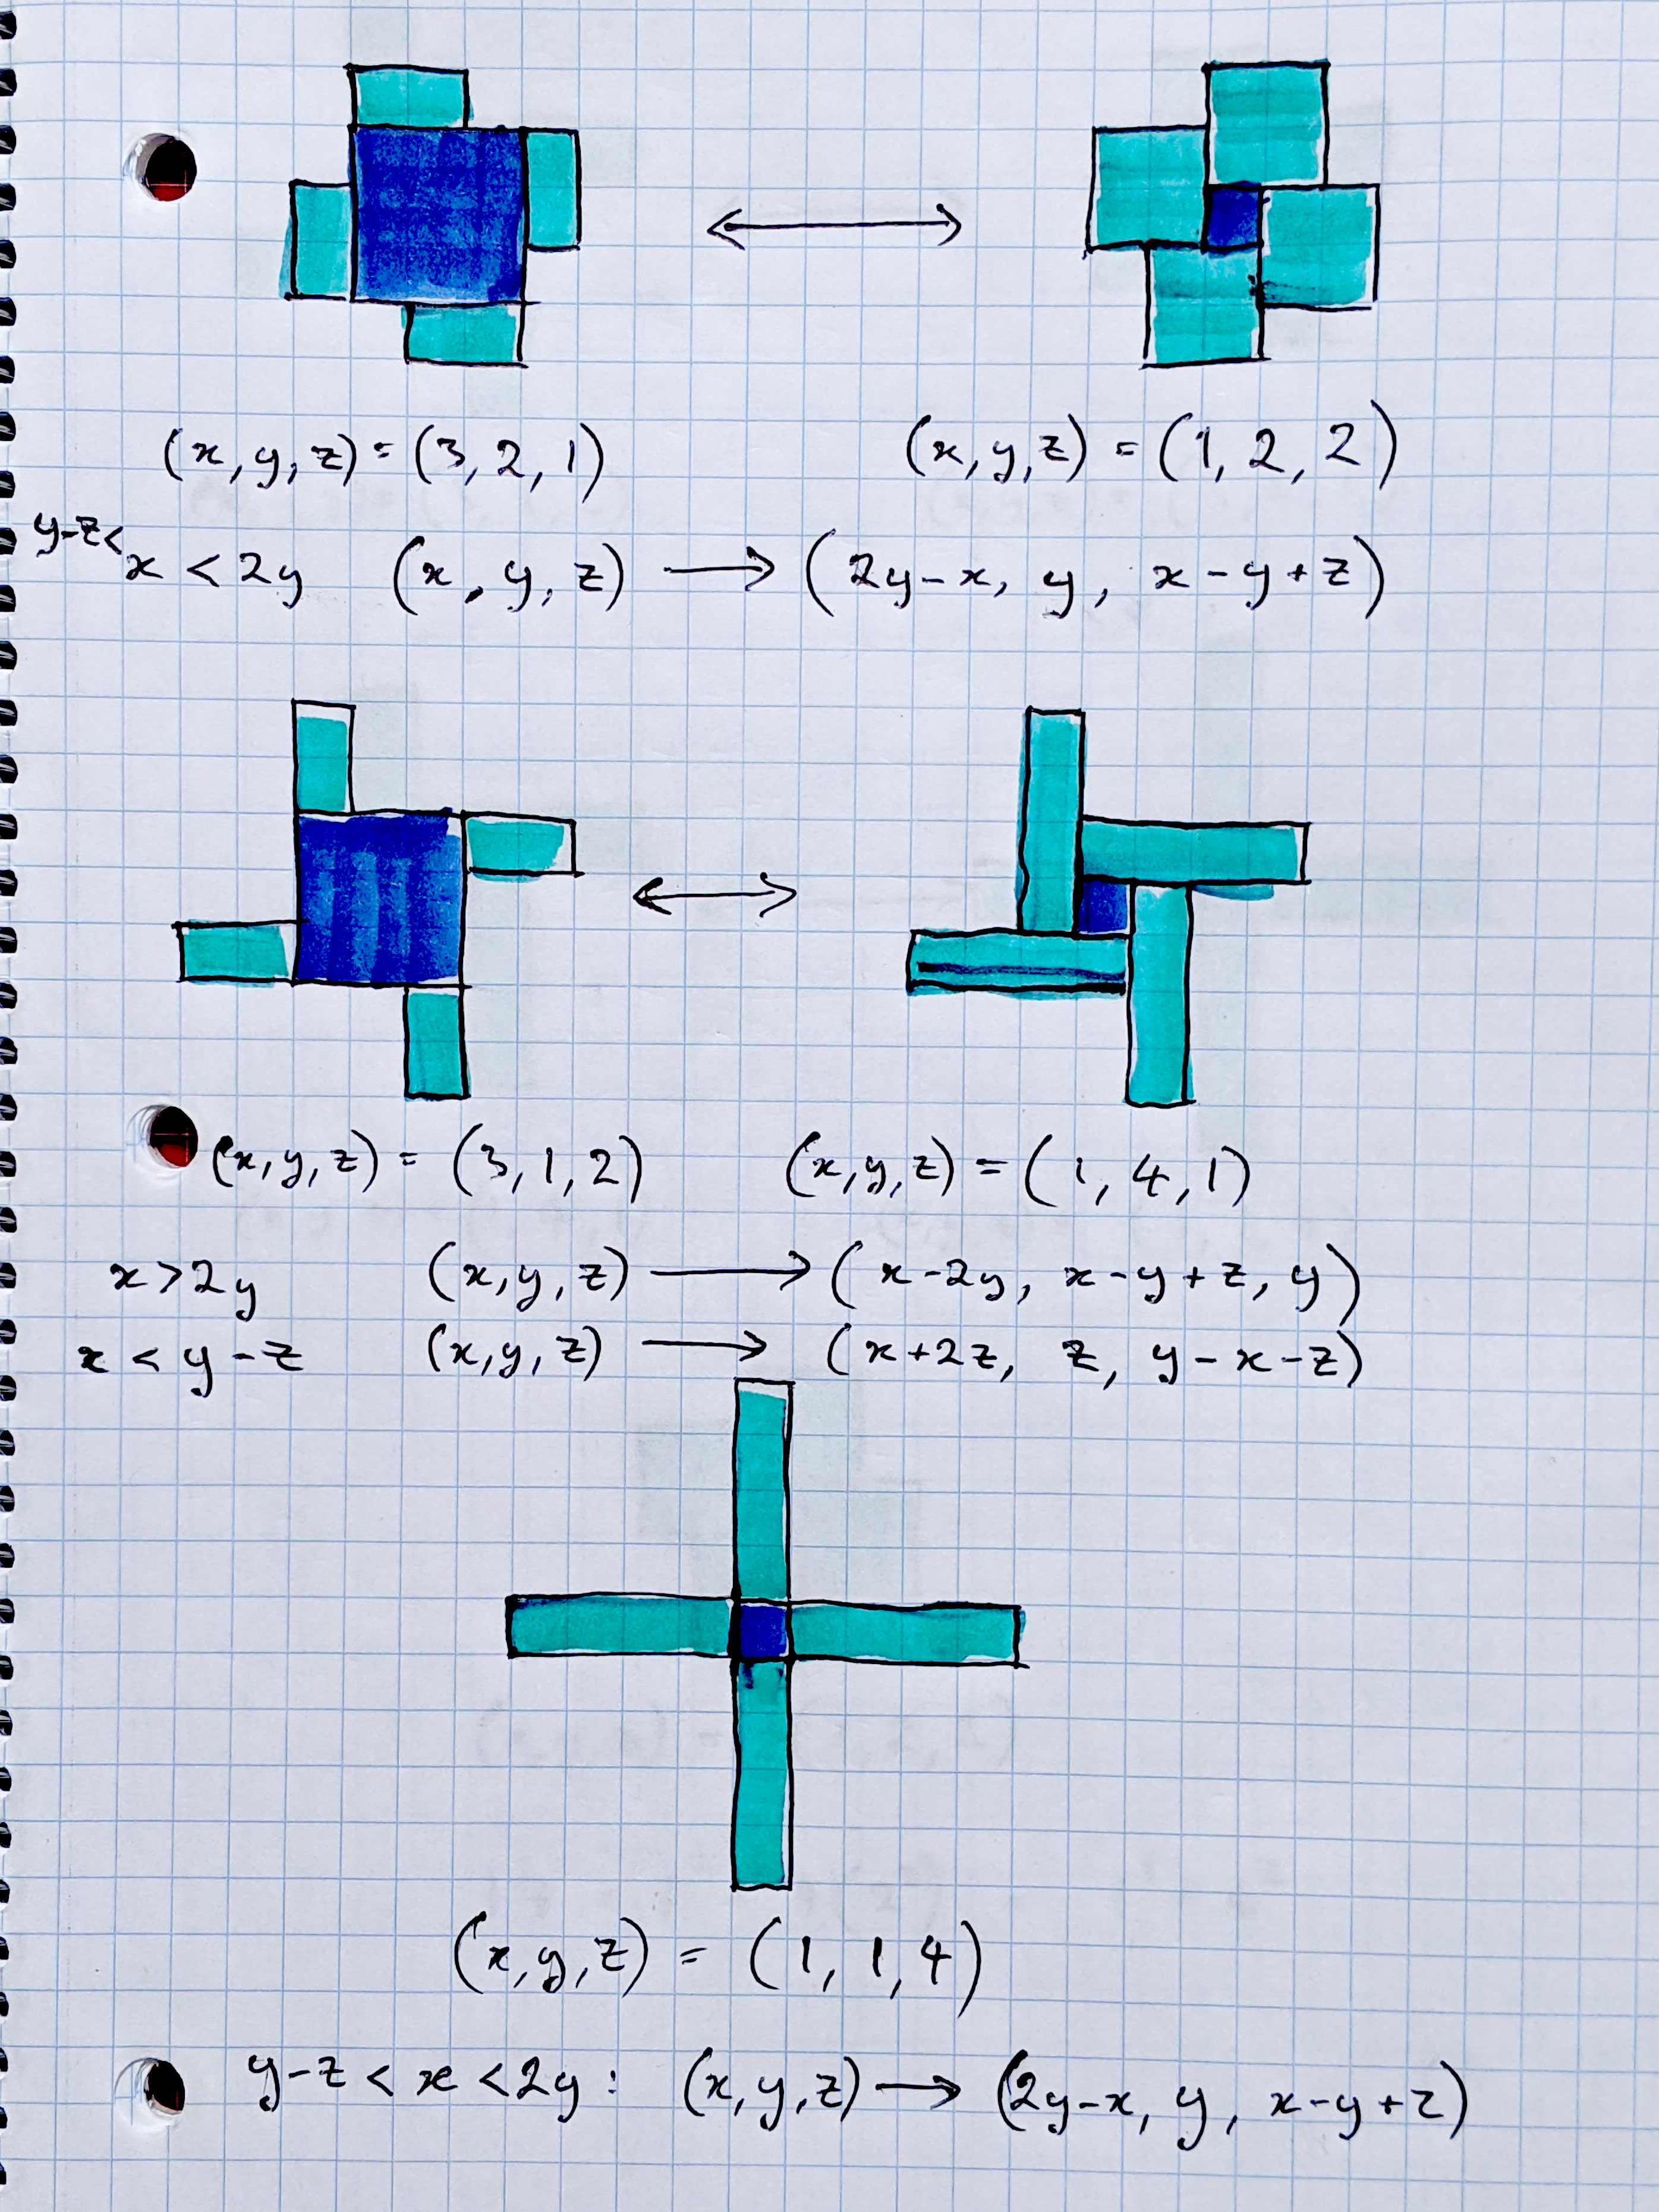 (x, y, z) = (3, 2, 1) (x, y, z) = (1, 2, 2)
y-z<
x < 2y (x, y, z) → (2y-x, y, x-y+z)
(x, y, z) = (3, 1, 2) (x, y, z) = (1, 4, 1)
x > 2y (x, y, z) → (x-2y, x-y+z, y)
x < y-z (x, y, z) → (x+2z, z, y-x-z)
(x, y, z) = (1, 1, 4)
y-z < x < 2y: (x, y, z) → (2y-x, y, x-y+z)